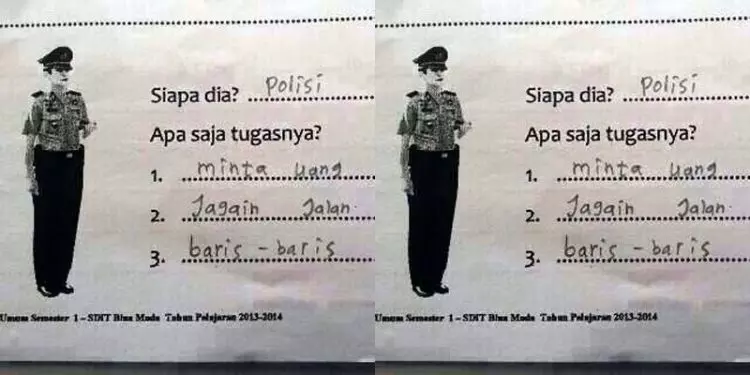 Siapa dia? Polisi
Apa saja tugasnya?
1. minta uang
2. Jagain Jalan
3. baris - baris
Umum Semester 1 – SDIT Bina Muda Tahun Pelajaran 2013-2014
Siapa dia? Polisi
Apa saja tugasnya?
1. minta uang
2. Jagain Jalan
3. baris - baris
Umum Semester 1 – SDIT Bina Muda Tahun Pelajaran 2013-2014